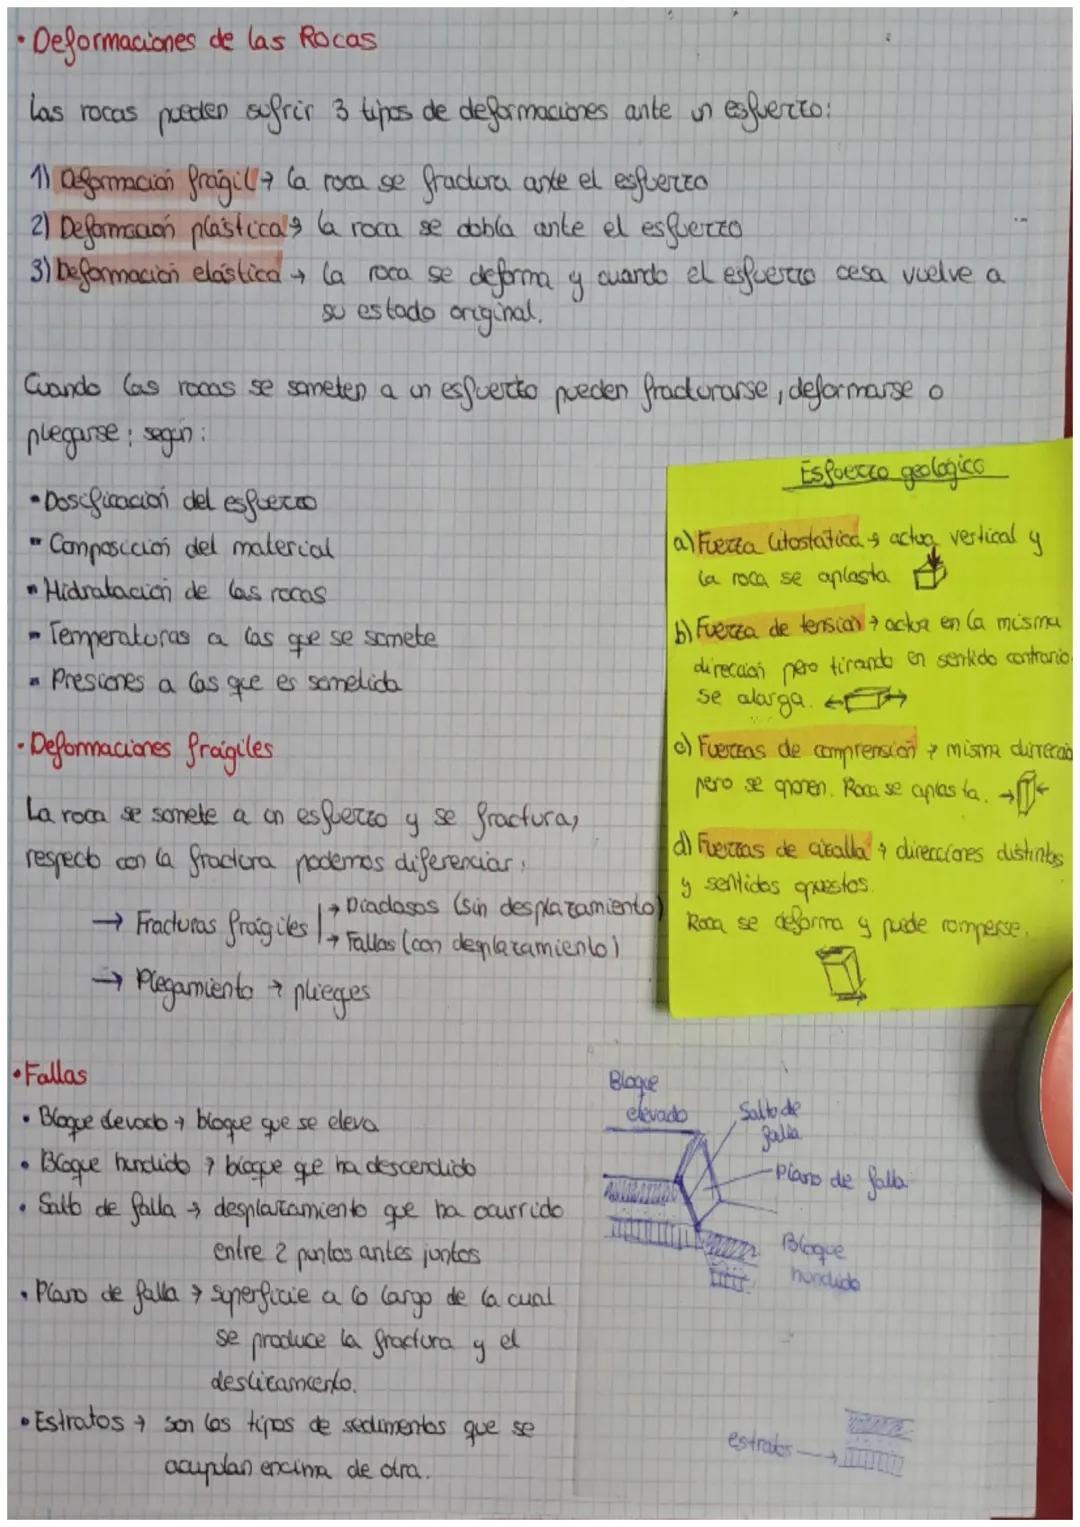 • Deformaciones de las Rocas
Las rocas pueden sufrir 3 tipos de deformaciones ante un esfuerzo:
1) Deformación frágil → la roca se fractura ante el esfuerzo
2) Deformación plástica → la roca se dobla ante el esfuerzo
3) Deformación elástica → la roca se deforma y cuando el esfuerzo cesa vuelve a
su estado original.
Cuando las rocas se someten a un esfuerzo pueden fracturarse, deformarse o
plegarse; según:
- Dosificación del esfuerzo
- Composición del material
- Hidratación de las rocas
- Temperaturas a las que se somete
- Presiones a las que es sometida
• Deformaciones frágiles
La roca se somete a un esfuerzo y se fractura,
respecto con la fractura podemos diferenciar:
→ Fracturas frágiles
→ Diaclasas (sin desplazamiento)
→ Fallas (con desplazamiento)
→ Plegamiento → pliegues
Esfuerzo geológico
a) Fuerza litostática → actua vertical y
la roca se aplasta
b) Fuerza de tensión → actua en la misma
dirección pero tirando en sentido contrario.
Se alarga.
c) Fuerzas de comprensión → misma dirrección
pero se oponen. Roca se aplasta.
d) Fuerzas de cizalla → direcciones distintas
y sentidos opuestos.
Roca se deforma y puede romperse.
• Fallas
• Bloque elevado → bloque que se eleva
• Bloque hundido → bloque que ha descendido
• Salto de falla → desplazamiento que ha ocurrido
entre 2 puntos antes juntos
• Plano de falla → superficie a lo largo de la cual
se produce la fractura y el
deslizamiento.
• Estratos → son los tipos de sedimentos que se
acumulan encima de otra.
Bloque
elevado
Salto de
falla
Plano de falla
Bloque
hundido
estratos